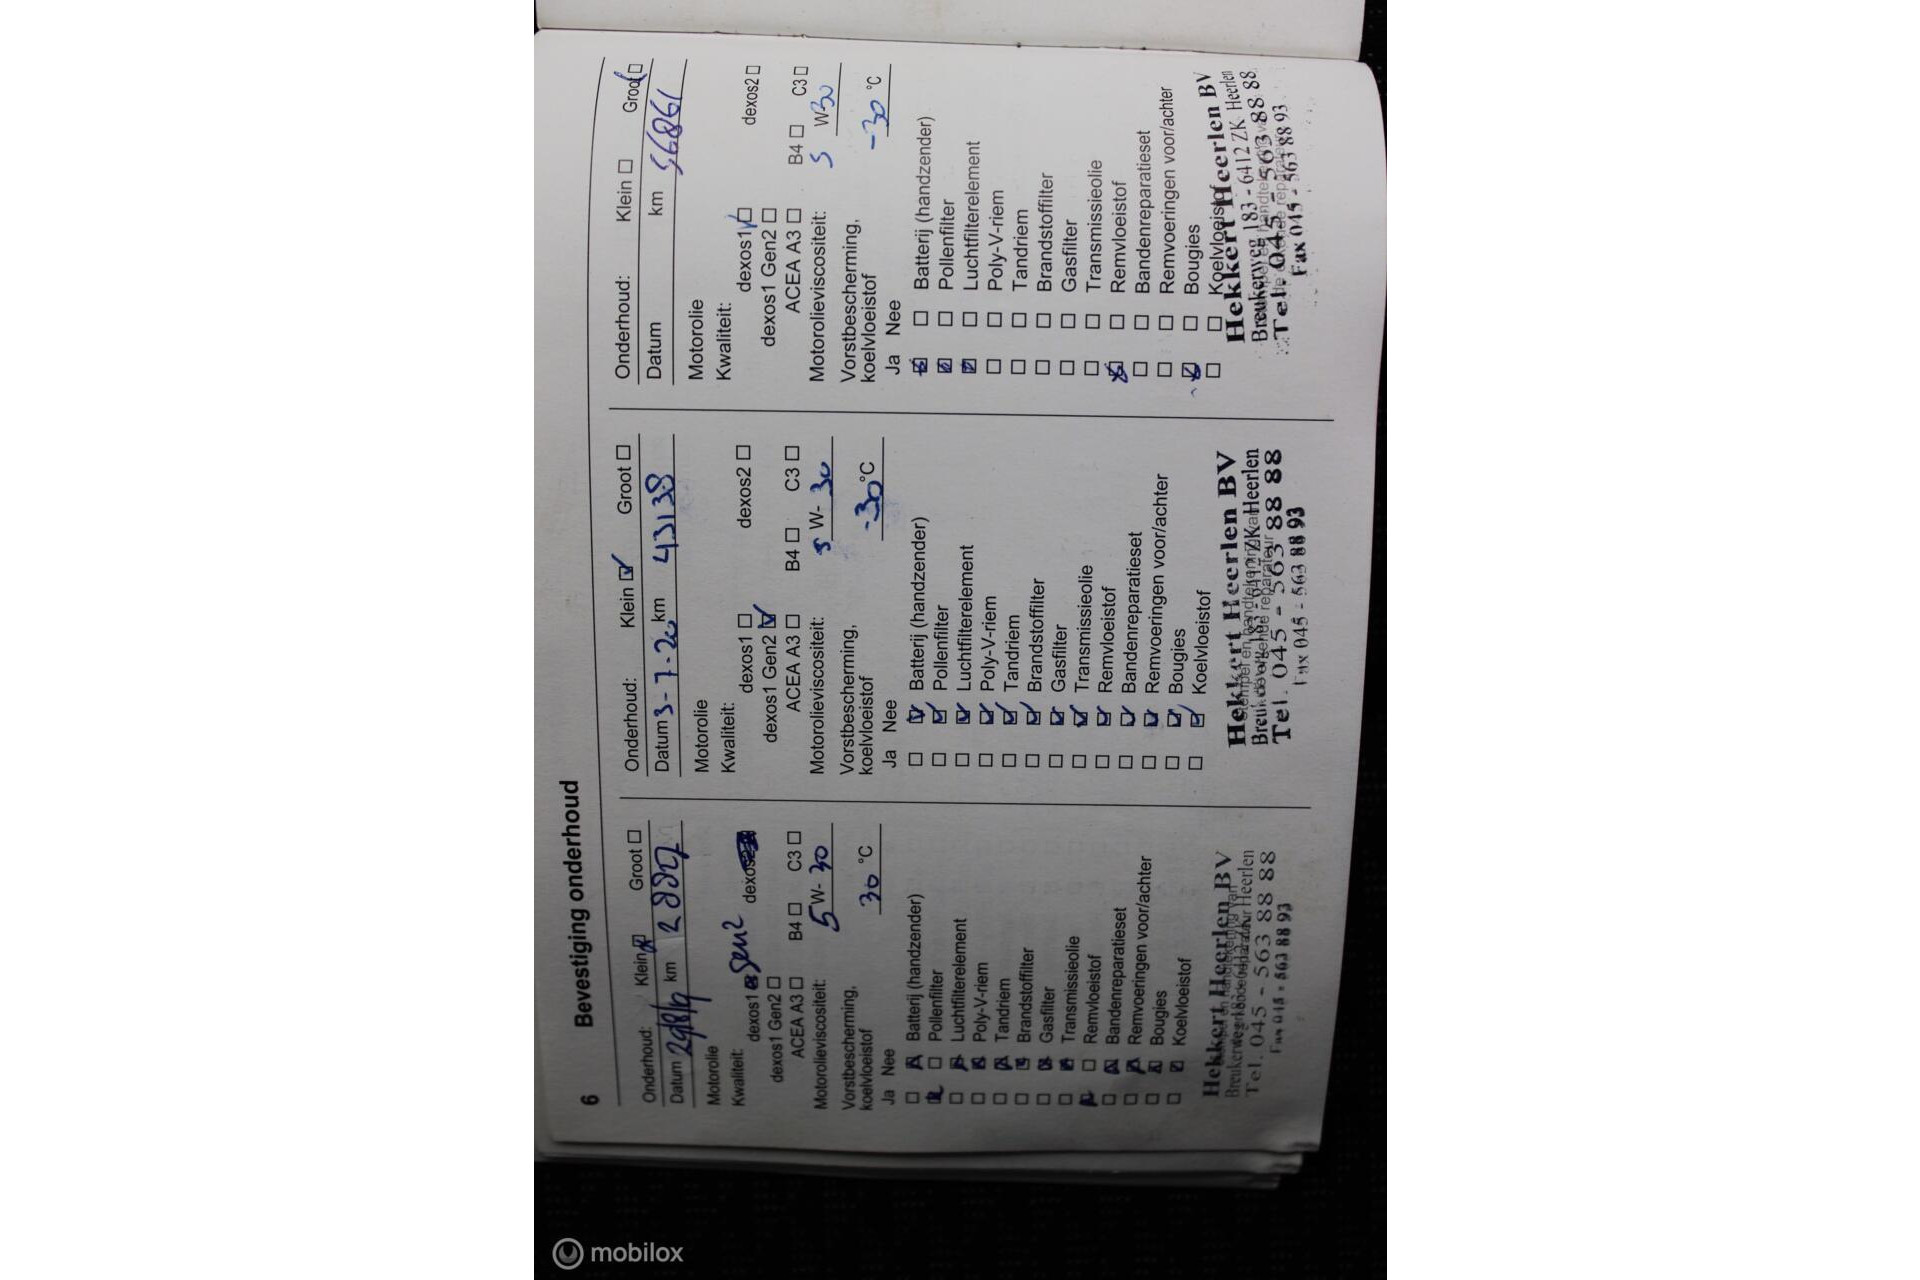 6 Bevestiging onderhoud
Onderhoud: Klein Groot
Datum 29/8/19 km
Motorolie
Kwaliteit:
dexos1 Gen2
dexos1 Gen2
ACEA A3 B4 C3
Motorolieviscositeit: 5 W- 30
Vorstbescherming,
koelvloeistof 30 °C
Ja Nee
Batterij (handzender)
Pollenfilter
Luchtfilterelement
Poly-V-riem
Tandriem
Brandstoffilter
Gasfilter
Transmissieolie
Remvloeistof
Bandenreparatieset
Remvoeringen voor/achter
Bougies
Koelvloeistof
Hekkert Heerlen BV
Breukerweg 183 Heerlen
Tel. 045 - 563 88 88
Fax 045 - 563 88 93
Onderhoud: Klein Groot
Datum 3-7-20 km 43138
Motorolie
Kwaliteit:
dexos1 dexos2
dexos1 Gen2
ACEA A3 B4 C3
Motorolieviscositeit: 5 W- 30
Vorstbescherming,
koelvloeistof -30 °C
Ja Nee
Batterij (handzender)
Pollenfilter
Luchtfilterelement
Poly-V-riem
Tandriem
Brandstoffilter
Gasfilter
Transmissieolie
Remvloeistof
Bandenreparatieset
Remvoeringen voor/achter
Bougies
Koelvloeistof
Hekkert Heerlen BV
Breukerweg 183 - 6412 ZK Heerlen
Tel. 045 - 563 88 88
Fax 045 - 563 88 93
Onderhoud: Klein Groot
Datum km 56861
Motorolie
Kwaliteit:
dexos1 dexos2
dexos1 Gen2
ACEA A3 B4 C3
Motorolieviscositeit: 5 W-30
Vorstbescherming,
koelvloeistof -30 °C
Ja Nee
Batterij (handzender)
Pollenfilter
Luchtfilterelement
Poly-V-riem
Tandriem
Brandstoffilter
Gasfilter
Transmissieolie
Remvloeistof
Bandenreparatieset
Remvoeringen voor/achter
Bougies
Koelvloeistof
Hekkert Heerlen BV
Breukerweg 183 - 6412 ZK Heerlen
Tel. 045 - 563 88 88
Fax 045 - 563 88 93
mobilox